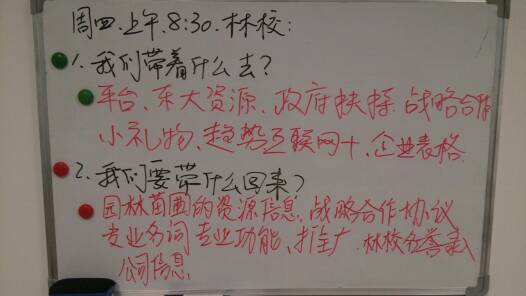 周四.上午.8:30.林校:
1.我们带着什么去?
平台、东大资源、政府扶持.战略合作
小礼物、趋势互联网+、企业表格.
2.我们要带什么回来?
园林苗圃的资源信息、战略合作协议
专业名词 专业功能、推广 林校名誉录
公司信息